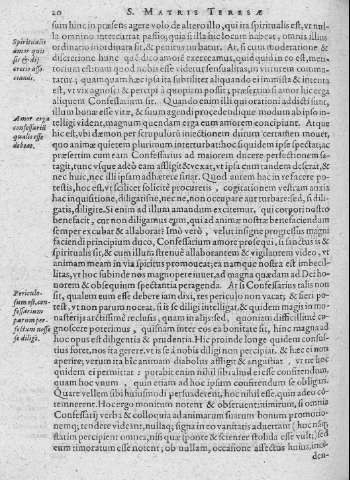 20 S. MATRIS TERESÆ
sum hinc in præsens agere volo de altero illo, qui ita spiritualis est, vt nul-
la omnino intercurrat passio; quia si illa hic locum habeat, omnis illius
ordinatio inordinata sit, & penitus turbatur. At si cum moderatione &
discretione hunc quẽ dico amorẽ exerceamus, quidquid in eo est, meri-
torium est: nam quod nobis esse videtur sensualitas, in virtutem commu-
tatur; quamquam hæc ipsa ita subtiliter aliquando ei immista & intenta
est, vt vix agnosci & percipi à quopiam possit; præsertim si amor hic erga
aliquem Confessarium sit. Quando enim illi qui orationi addicti sunt,
illum bonæ esse vitæ, & suum agendi procedendique modum ab ipso in-
telligi vident, magnum quendam erga eum amorem concipiunt. Atque
hic est, vbi dæmon per scrupulûm iniectionem durum certamen mouet,
quo animæ quietem plurimum interturbat: hoc siquidem ipse spectat; ac
præsertim cum eam Confessarius ad maiorem ducere perfectionem sa-
tagit, tunc vsque adeò eam affligit & vexat, vt ipsa eum tandem deserat, &
nec huic, nec illi ipsam adhærere sinat. Quod autem hac in re facere po-
testis, hoc est, vt scilicet solicitè procuretis, cogitationem vestram anxia
hac inquisitione, diligatisne, nec ne, non occupare aut turbare: sed, si dili-
gatis, diligite. Si enim ad illum amandum excitemur, qui corpori nostro
benefacit, cur non diligamus eum, qui ad animæ nostræ beneficiendum
semper excubat & allaborat? Imò verò, velut insigne progressus magni
faciendi principium duco, Confessarium amore prosequi, si sanctus is &
spiritualis sit, & cum illum strenuè allaborantem & vigilantem video, vt
animam meam in via spiritus promoueat; ea namque nostra est imbecil-
litas, vt hoc subinde nos magnopere iuuet, ad magna quædam ad Dei ho-
norem & obsequium spectantia peragenda. At si Confessarius talis non
sit, qualem eum esse debere iam dixi, res periculo non vacat; & fieri po-
test, vt non parum noceat, si is se diligi intelligat, & quidem magis in mo-
nasterijs arctissimè reclusis, quam in alijs: sed, quoniam difficillimè co-
gnoscere poterimus, quisnam inter eos ea bonitate sit, hinc magna ad
hoc opus est diligentia & prudentia. Hic proinde longe quidem consul-
tius foret, nos ita gerere, vt is se à nobis diligi non percipiat, & hæc ei non
aperire; verum ita hîc animam diabolus affligit & angustiat, vt ne hoc
quidem ei permittat: putabit enim nihil sibi aliud ei esse confitendum,
quam hoc vnum, quin etiam ad hoc ipsum confitendum se obligari.
Quare vellem sibi huiusmodi persuaderent, hoc nihil esse, quin adeo cõ-
temnerent. Hoc ergo monitum notent & obseruent: nimirum, si omnia
Confessarij verba & colloquia ad animarum suarum bonum promotio-
nemq; tendere videant, nullaq; signa in eo vanitatis aduertant (hoc namq;
statim percipient omnes, nisi quæ sponte & scienter stolida esse vult) sed
eum timoratum esse notent; ob nullam, occasione affectus huius, inci-
den-
Spiritualis
amor quis
sit & dis-
cretio assi-
enanda.
Amor erga
confessariũ
qualis esse
debeat.
Periculo-
sum est, con-
fessarium
parum per-
fectum nosse
se diligi.